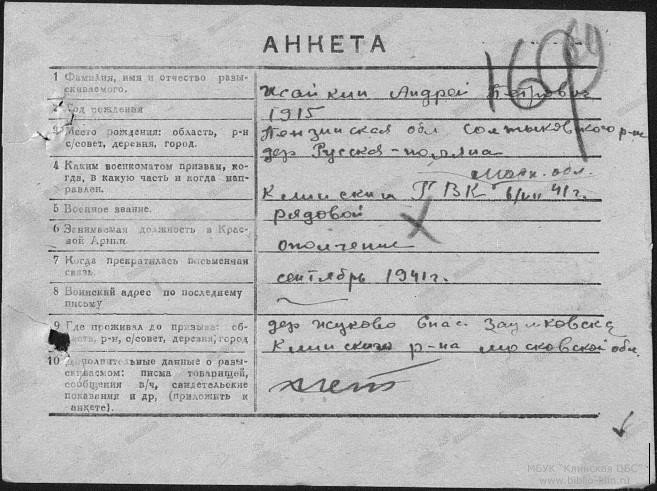 АНКЕТА
1 Фамилия, имя и отчество разы-
скиваемого.
Жайкин Андрей Петрович
2 Год рождения
1915
3 Место рождения: область, р-н
с/совет, деревня, город.
Пензинская обл Солтыковского р-на
дер Русская-поляна
4 Каким военкоматом призван, ко-
гда, в какую часть и когда нап-
равлен.
Моск. обл.
Клински РВК 6/VII 41 г.
5 Военное звание.
рядовой
6 Занимаемая должность в Крас-
ной Армии
ополчение
7 Когда прекратилась письменная
связь.
сентябрь 1941 г.
8 Воинский адрес по последнему
письму
9 Где проживал до призыва: об-
ласть, р-н, с/совет, деревня, город
дер Жуково Спас.
Клинского р-на Московской обл.
10 Дополнительные данные о разы-
скиваемом: письма товарищей,
сообщения в/ч, свидетельские
показания и др, (приложить к
анкете).
нет
МБУК "Клинская ЦБС"
www.biblio-klin.ru